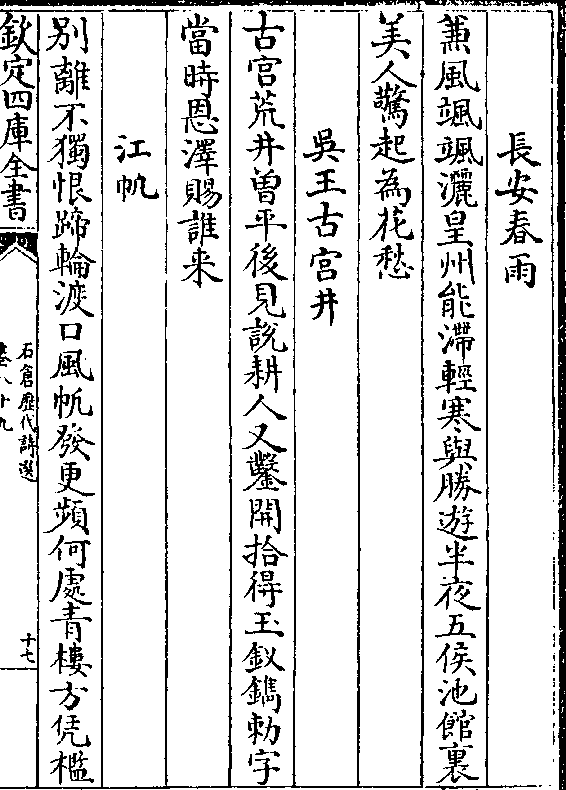 長安春雨
兼風颯颯灑皇州能滯輕寒與勝遊半夜五侯池館裏
美人驚起為花愁
吳王古宫井
古宫荒井曽平後見說耕人又鑿開拾得玉釵鐫勅字
當時恩澤賜誰来
江帆
别離不獨恨蹄輪渡口風帆發更頻何處青樓方凭檻
欽定四庫全書
石倉歷代詩選
卷八十九
十七